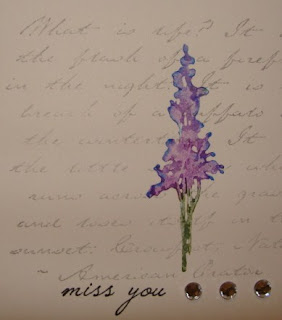 What is life? It
the flash of a firef
in the night. It is
breath of a buffalo
the wintert It
the little whi
runs across the gra
and loses itself in t
sunset. Crowfoot, Nat
~ American Orator
miss you